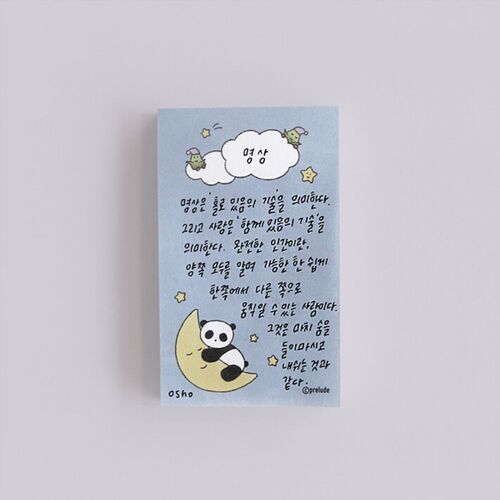 명상
명상은 '홀로 있음의 기술'을 의미한다.
그리고 사랑은 '함께 있음의 기술'을
의미한다. 완전한 인간이란,
양쪽 모두를 알며 가능한 한 쉽게
한쪽에서 다른 쪽으로
움직일 수 있는 사람이다.
그것은 마치 숨을
들이마시고
내쉬는 것과
같다.
osho
©prelude